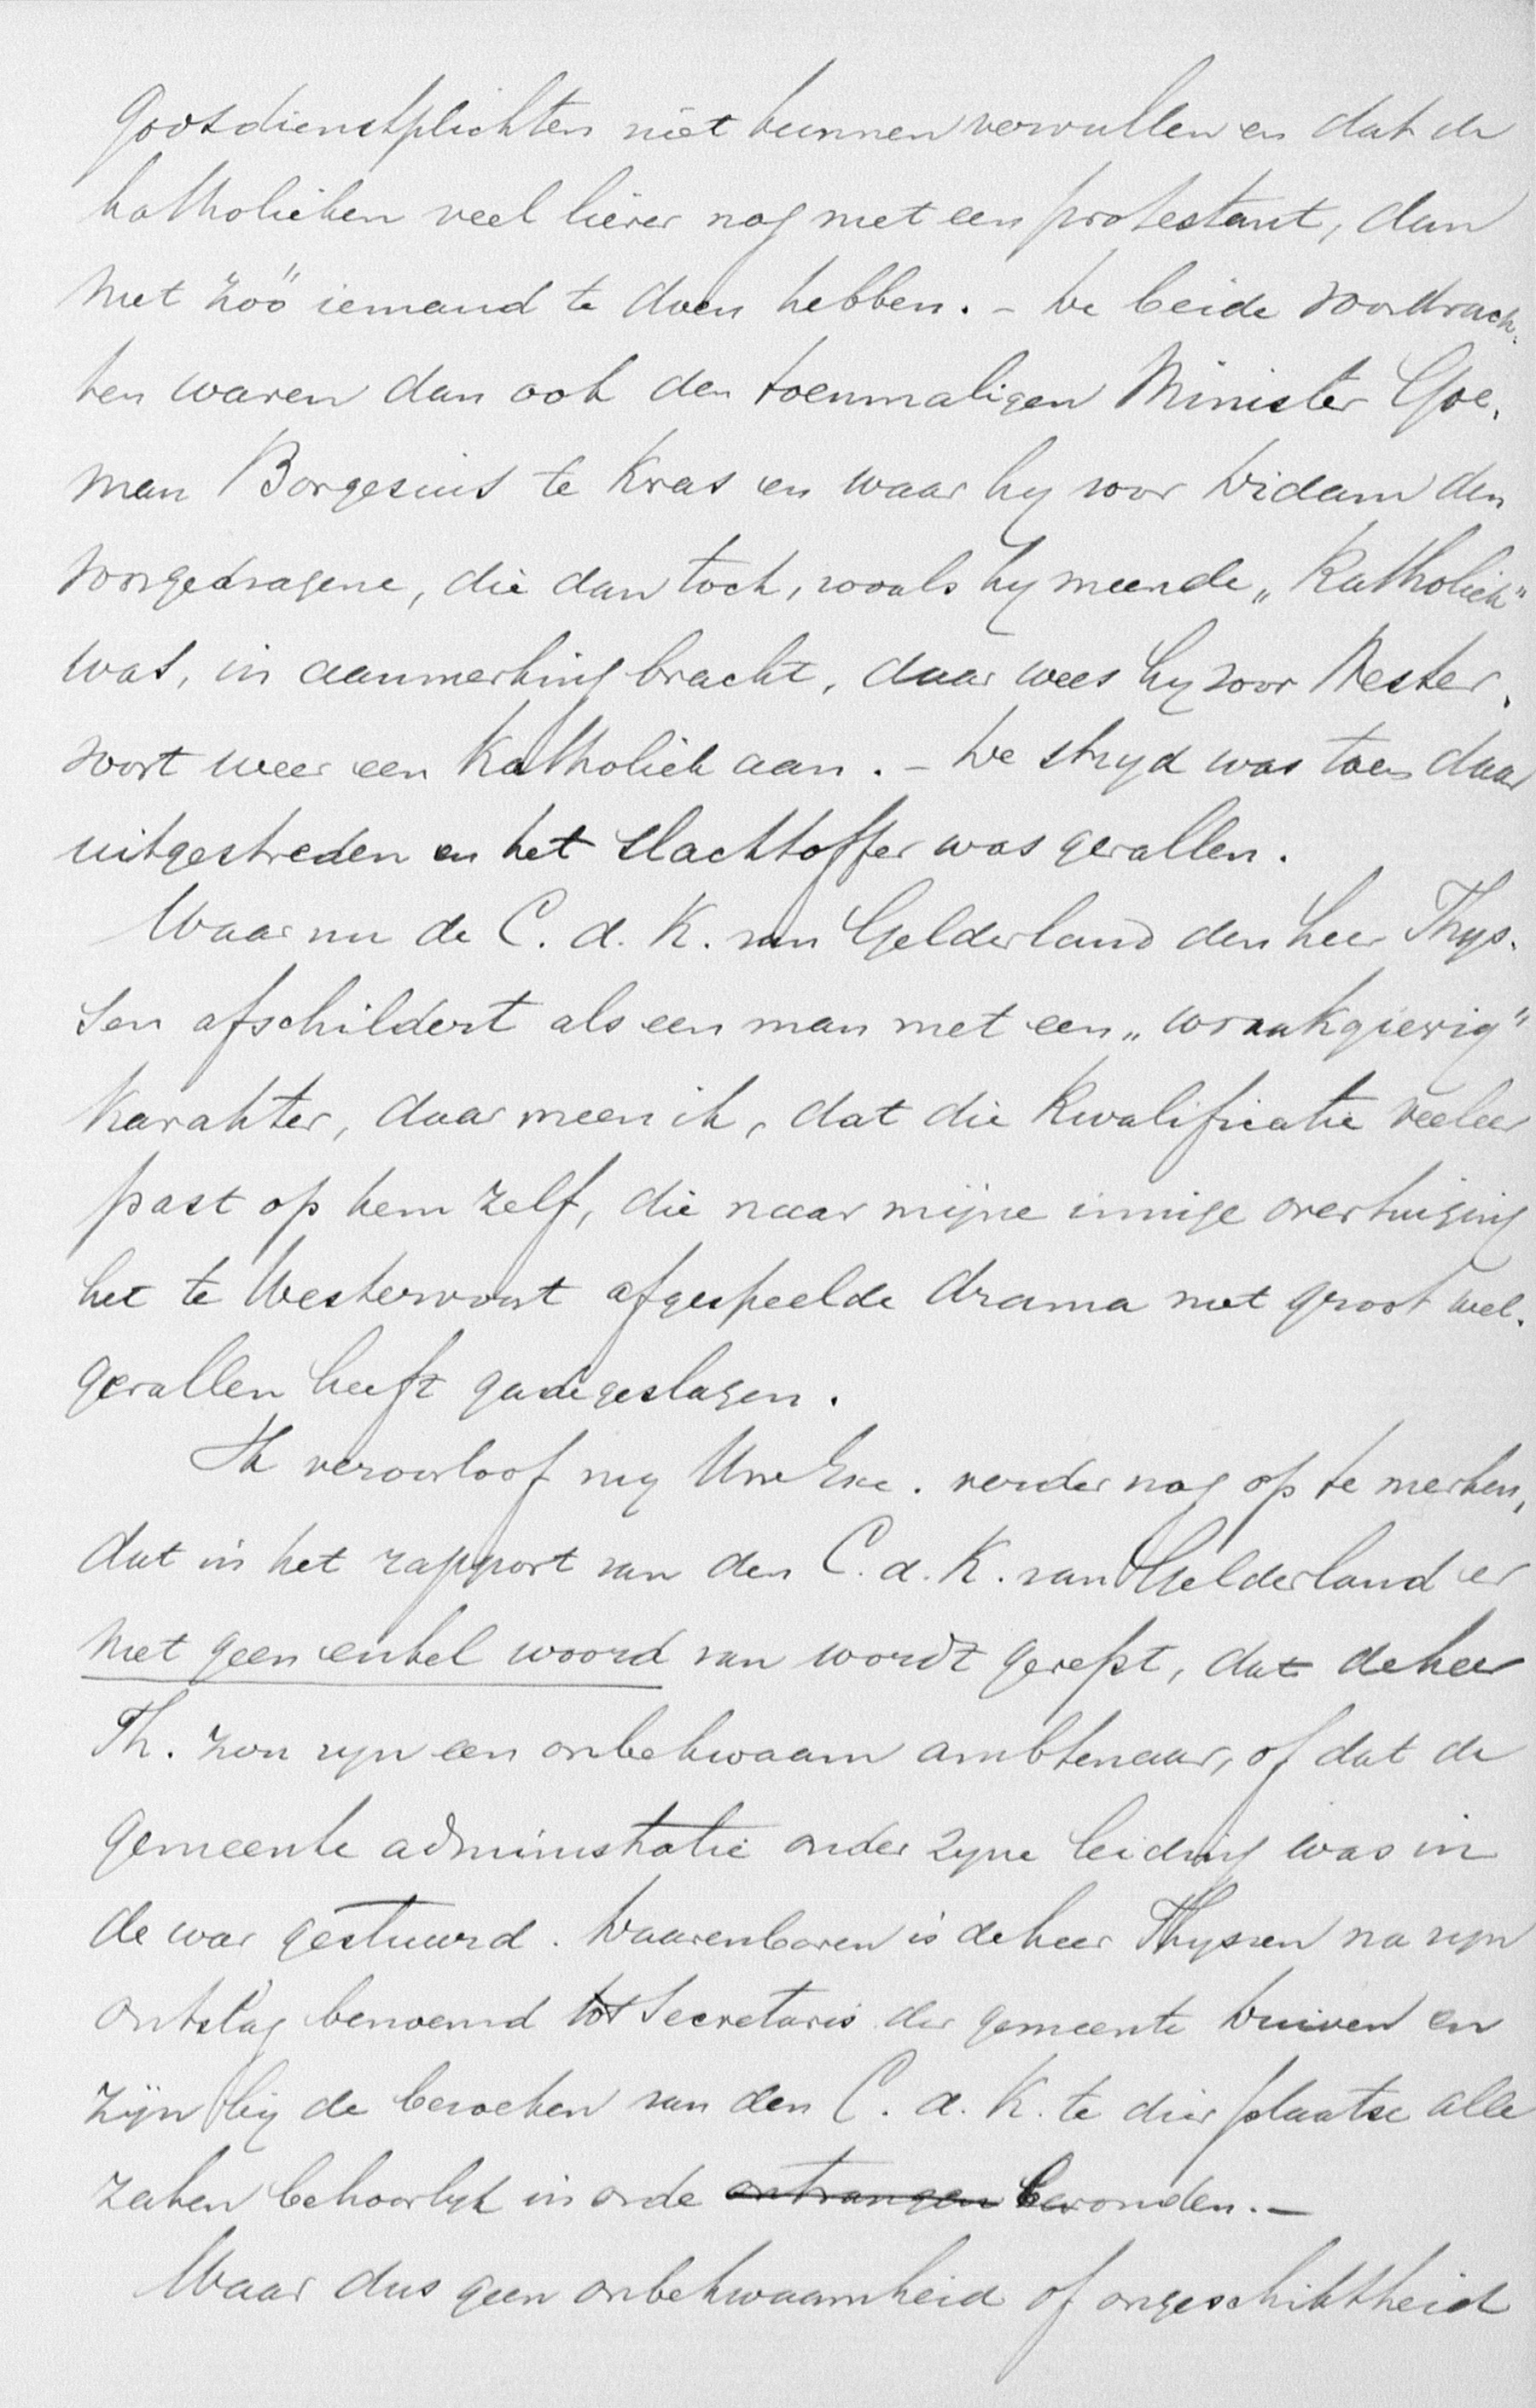 Godsdienstplichten niet kunnen vervullen en dat de
katholieken veel liever nog met een protestant, dan
met zoo iemand te doen hebben. – De beide voordrach-
ten waren dan ook den toenmaligen Minister Goe-
man Borgesius te kras en waar hy voor Didam den
voorgedragene, die dan toch, zooals hy meende „Katholiek"
was, in aanmerking bracht, daar wees hy voor Wester-
voort weer een Katholiek aan. – De stryd was toen daar
uitgestreden en het slachtoffer was gevallen.
Waar nu de C. d. K. van Gelderland den heer Thys-
sen afschildert als een man met een „wraakgierig"
karakter, daar meen ik, dat die kwalificatie veeleer
past op hem zelf, die naar mijne innige overtuiging
het te Westervoort afgespeelde drama met groot wel-
gevallen heeft gadegeslagen.
Ik veroorloof my Uwe Exc. verder nog op te merken,
dat in het rapport van den C. d. K. van Gelderland er
met geen enkel woord van wordt gerept, dat de heer
Th. zou zyn een onbekwaam ambtenaar, of dat de
gemeente administratie onder zyne leiding was in
de war gestuurd. Daarenboven is de heer Thyssen na zyn
ontslag benoemd tot Secretaris der gemeente Duiven en
zijn bij de bezoeken van den C. d. K. te dier plaatse alle
zaken behoorlyk in orde ontvangen bevonden. –
Waar dus geen onbekwaamheid of ongeschiktheid